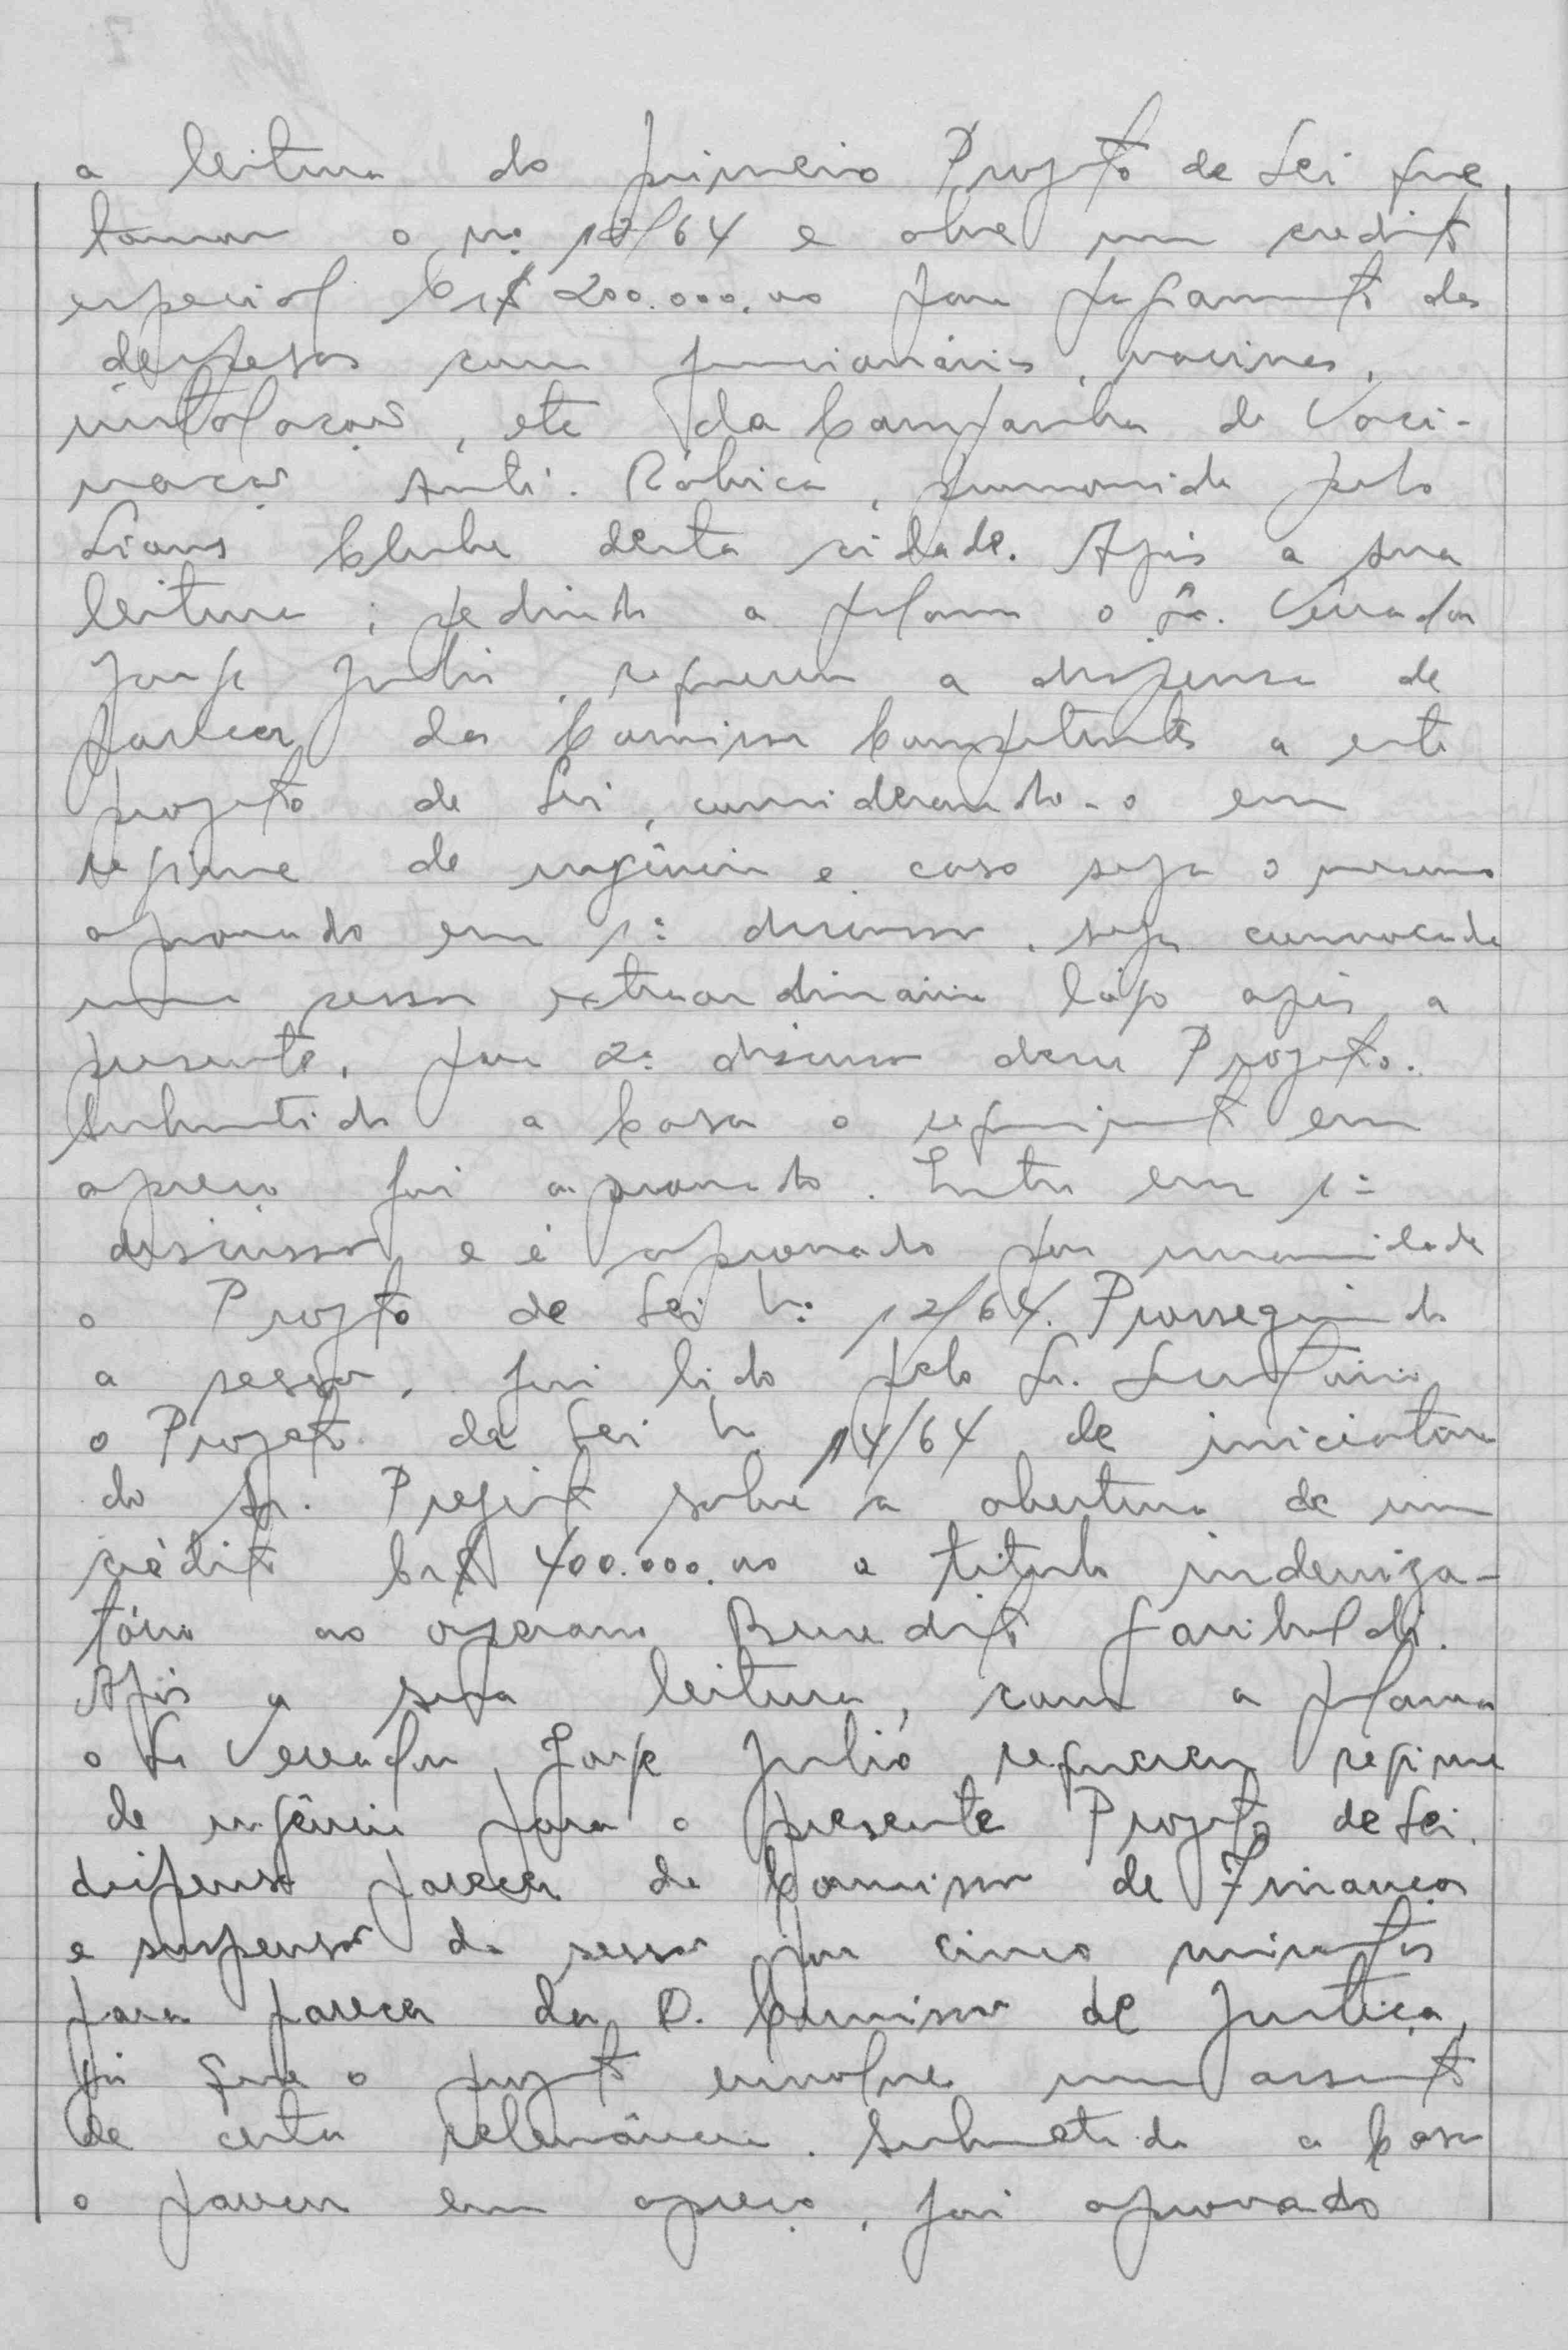 a leitura do primeiro Projeto de Lei que
tomou o nº 12/64 e abre um credito
especial Cr$ 200.000,00 para pagamento das
despesas com funcionários, vacinas,
instalação, etc da Campanha de Vaci-
nação Anti-Rábica, promovida pelo
Lions Clube desta cidade. Após a sua
leitura, pedindo a palavra o Sr. Vereador
Jorge Julio, requereu a dispensa de
parecer da Comissão Competente a este
projeto de Lei, considerando-o em
regime de urgência e caso seja o mesmo
aprovado em 1ª discussão, seja convocada
uma sessão extraordinária lógo após a
presente, para 2ª discussão desse Projeto.
Submetido a Casa o requerimento em
apreço foi aprovado. Entra em 1ª
discussão e é aprovado por unanimidade
o Projeto de Lei Nº 12/64. Prosseguindo
a sessão, foi lido pelo Sr. Secretário
o Projeto de Lei N 14/64 de iniciativa
do Sr. Prefeito sobre a abertura de um
crédito Cr$ 400.000,00 a titulo indeniza-
tório ao operario Benedito Garibaldi.
Após a sua leitura, com a palavra
o Sr Vereador Jorge Julio requereu regime
de urgência para o presente Projeto de Lei,
dispensa parecer da Comissão de Finanças
e suspensão da sessão por cinco minutos
para parecer da D. Comissão de Justiça,
já que o projeto envolve um assunto
de certa relevância. Submetido a Casa
o parecer em apreço, foi aprovado